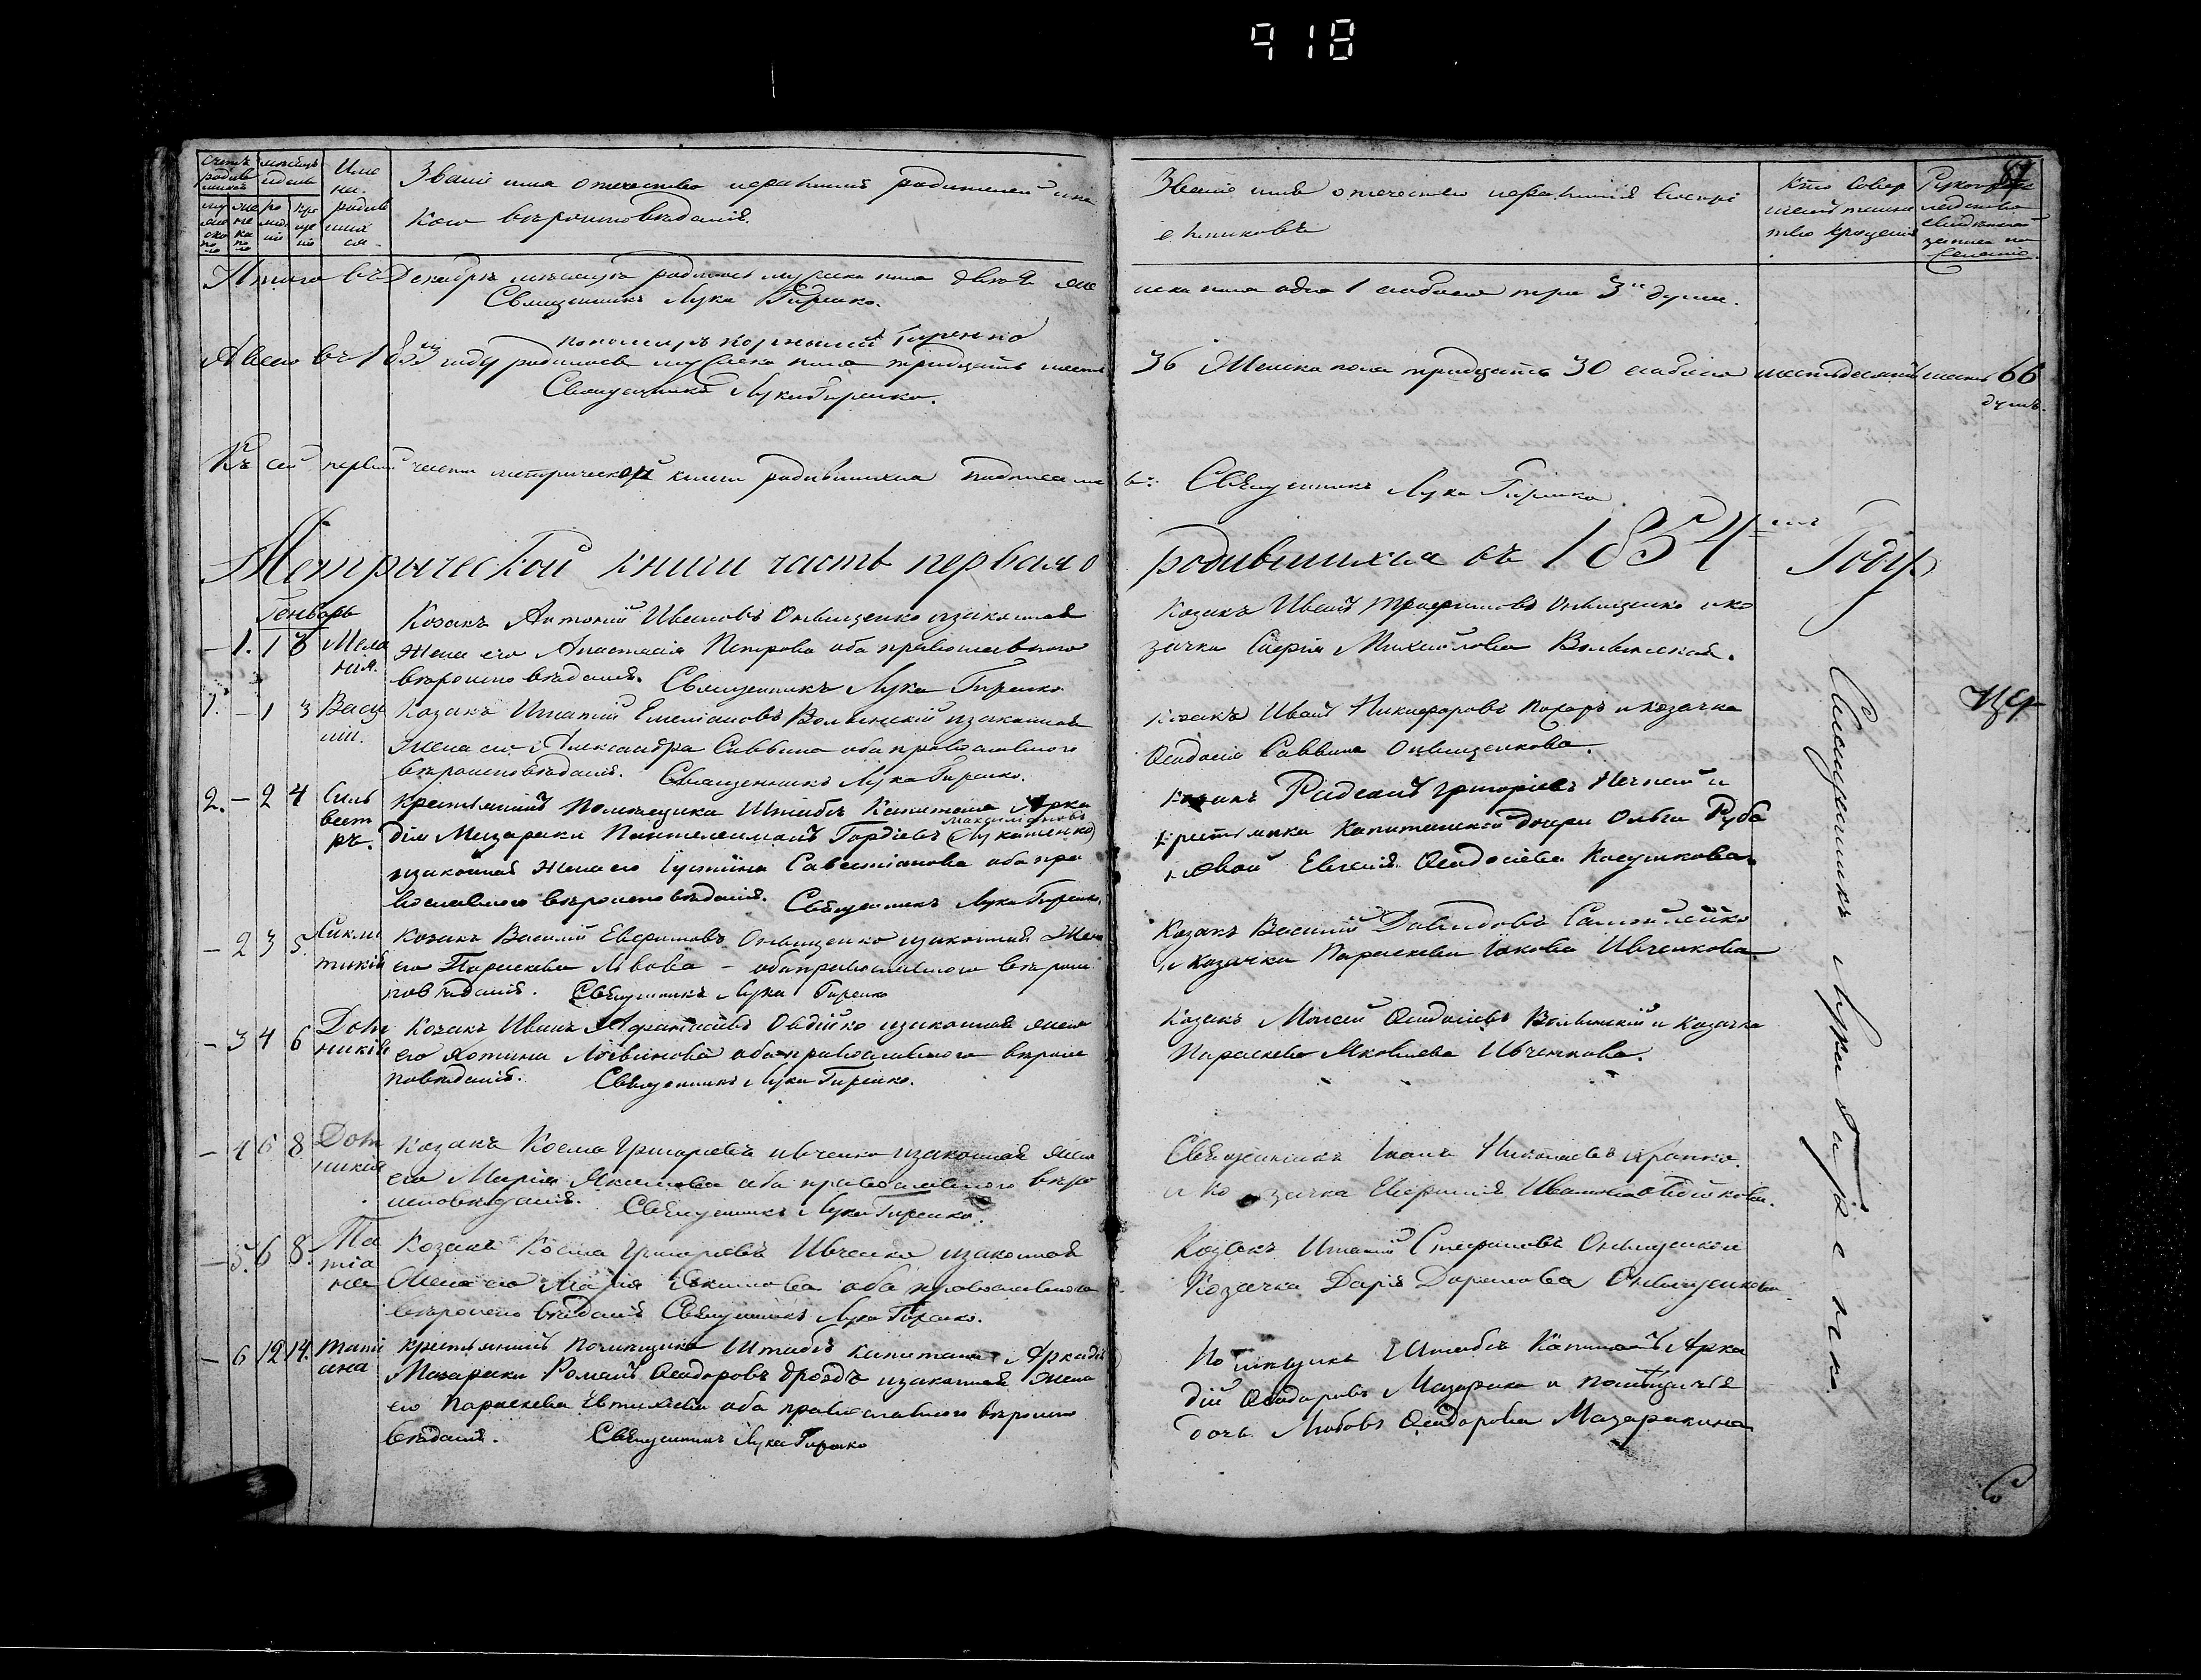 918
87
Счетъ родившихся
мужеска пола
женска пола
месяцъ и день
рождения
крещения
Име
на
родив
ших
ся
Званіе имя отечество и фамилія родителей и ка
кого вероисповѣданія.
Званіе имя отечество и фамилія воспрі
емниковъ
Кто совер
шалъ таинс
тво крещенія
Итого въ Декабрѣ мѣсяцѣ родилось мужеска пола двое 2 жен
ска пола одна 1 а обоего три 3 души.
Священникъ Лука Гиренко.
Пономарь Корнилій Гиренко
А всего въ 1853 году родилось мужеска пола тридцать шесть
36 Женска пола тридцать 30 а обоего шестьдесятъ шесть 66
душъ.
Священникъ Лука Гиренко.
Къ сей первой части метрической книги родившихся подписались:
Священникъ Лука Гиренко
Метрической книги часть первая о родившихся въ 1854 Году
Генварь
– 1. 1 3 Мела
нія.
Козакъ Антоній Ивановъ Онищенко и законная
жена его Анастасія Петрова оба православного
вѣроисповѣданія. Священникъ Лука Гиренко
Козакъ Иванъ Трофимовъ Онищенко и ко
зачка Софія Михайлова Волынская.
1. – 1 3 Васи
лій.
Козакъ Игнатій Емеліановъ Волынскій и законная
жена его Александра Саввина оба православного
вѣроисповѣданія. Священникъ Лука Гиренко.
Козакъ Иванъ Никифоровъ и козачка
Феодосія Саввина Онищенкова.
2. – 2 4 Силь
вест
ръ.
Крестьянинъ Помѣщика Штабъ Капитана Арка
дія Мазараки Пантелеимонъ Гордіевъ
и законная жена его Іустина Савастіанова оба пра
вославного вѣроисповѣданія. Священникъ Лука Гиренко.
Григоріевъ и
крестьянка Капитанской дочери Ольги
Евгенія Феодосіева
– 2 3 5. Синкли
тикія
Козакъ Василій Евфимовъ Онищенко и законная Жена
его Параскева Львова – оба православного вѣроис
повѣданія. Священникъ Лука Гиренко
Козакъ Василій Давидовъ Самойленко
и козачка Параскева Іаковова Ивченкова.
– 3 4 6 Дом
никія
Козакъ Иванъ Афанасіевъ Овдійко и законная жена
его Фотина Логвинова оба православного вѣроис
повѣданія. Священникъ Лука Гиренко.
Козакъ Моисей Феодосіевъ Волынскій и Козачка
Параскева Яковлева Ивченкова.
– 4 6 8 Дом
никія
Козакъ Косма Григоріевъ Ивченко и законная жена
его Марія Якимова оба православного вѣро
исповѣданія. Священникъ Лука Гиренко.
Священникъ Іоанъ Николаевъ
и козачка Евфимія Иванова Овдійкова.
– 5. 6 8. Та
тіа
на
Козакъ Косма Григоріевъ Ивченко и законная
Жена его Марія Якимова оба православного
вѣроисповѣданія Священникъ Лука Гиренко.
Козакъ Игнатій Стефановъ Онищенко и
Козачка Дарія Онищенкова.
– 6 12 14. Тати
ана
Крестьянинъ Помѣщика Штабъ Капитана Аркадія
Мазараки Романъ Феодоровъ Дроздъ и законная Жена
его Параскева Евтихіева оба православного вѣроиспо
вѣданія. Священникъ Лука Гиренко
Помѣщикъ Штабъ Капитанъ Арка
дій Феодоровъ Мазараки и помѣщичья
дочь Любовь Феодорова Мазаракина
Священникъ Лука Гиренко.